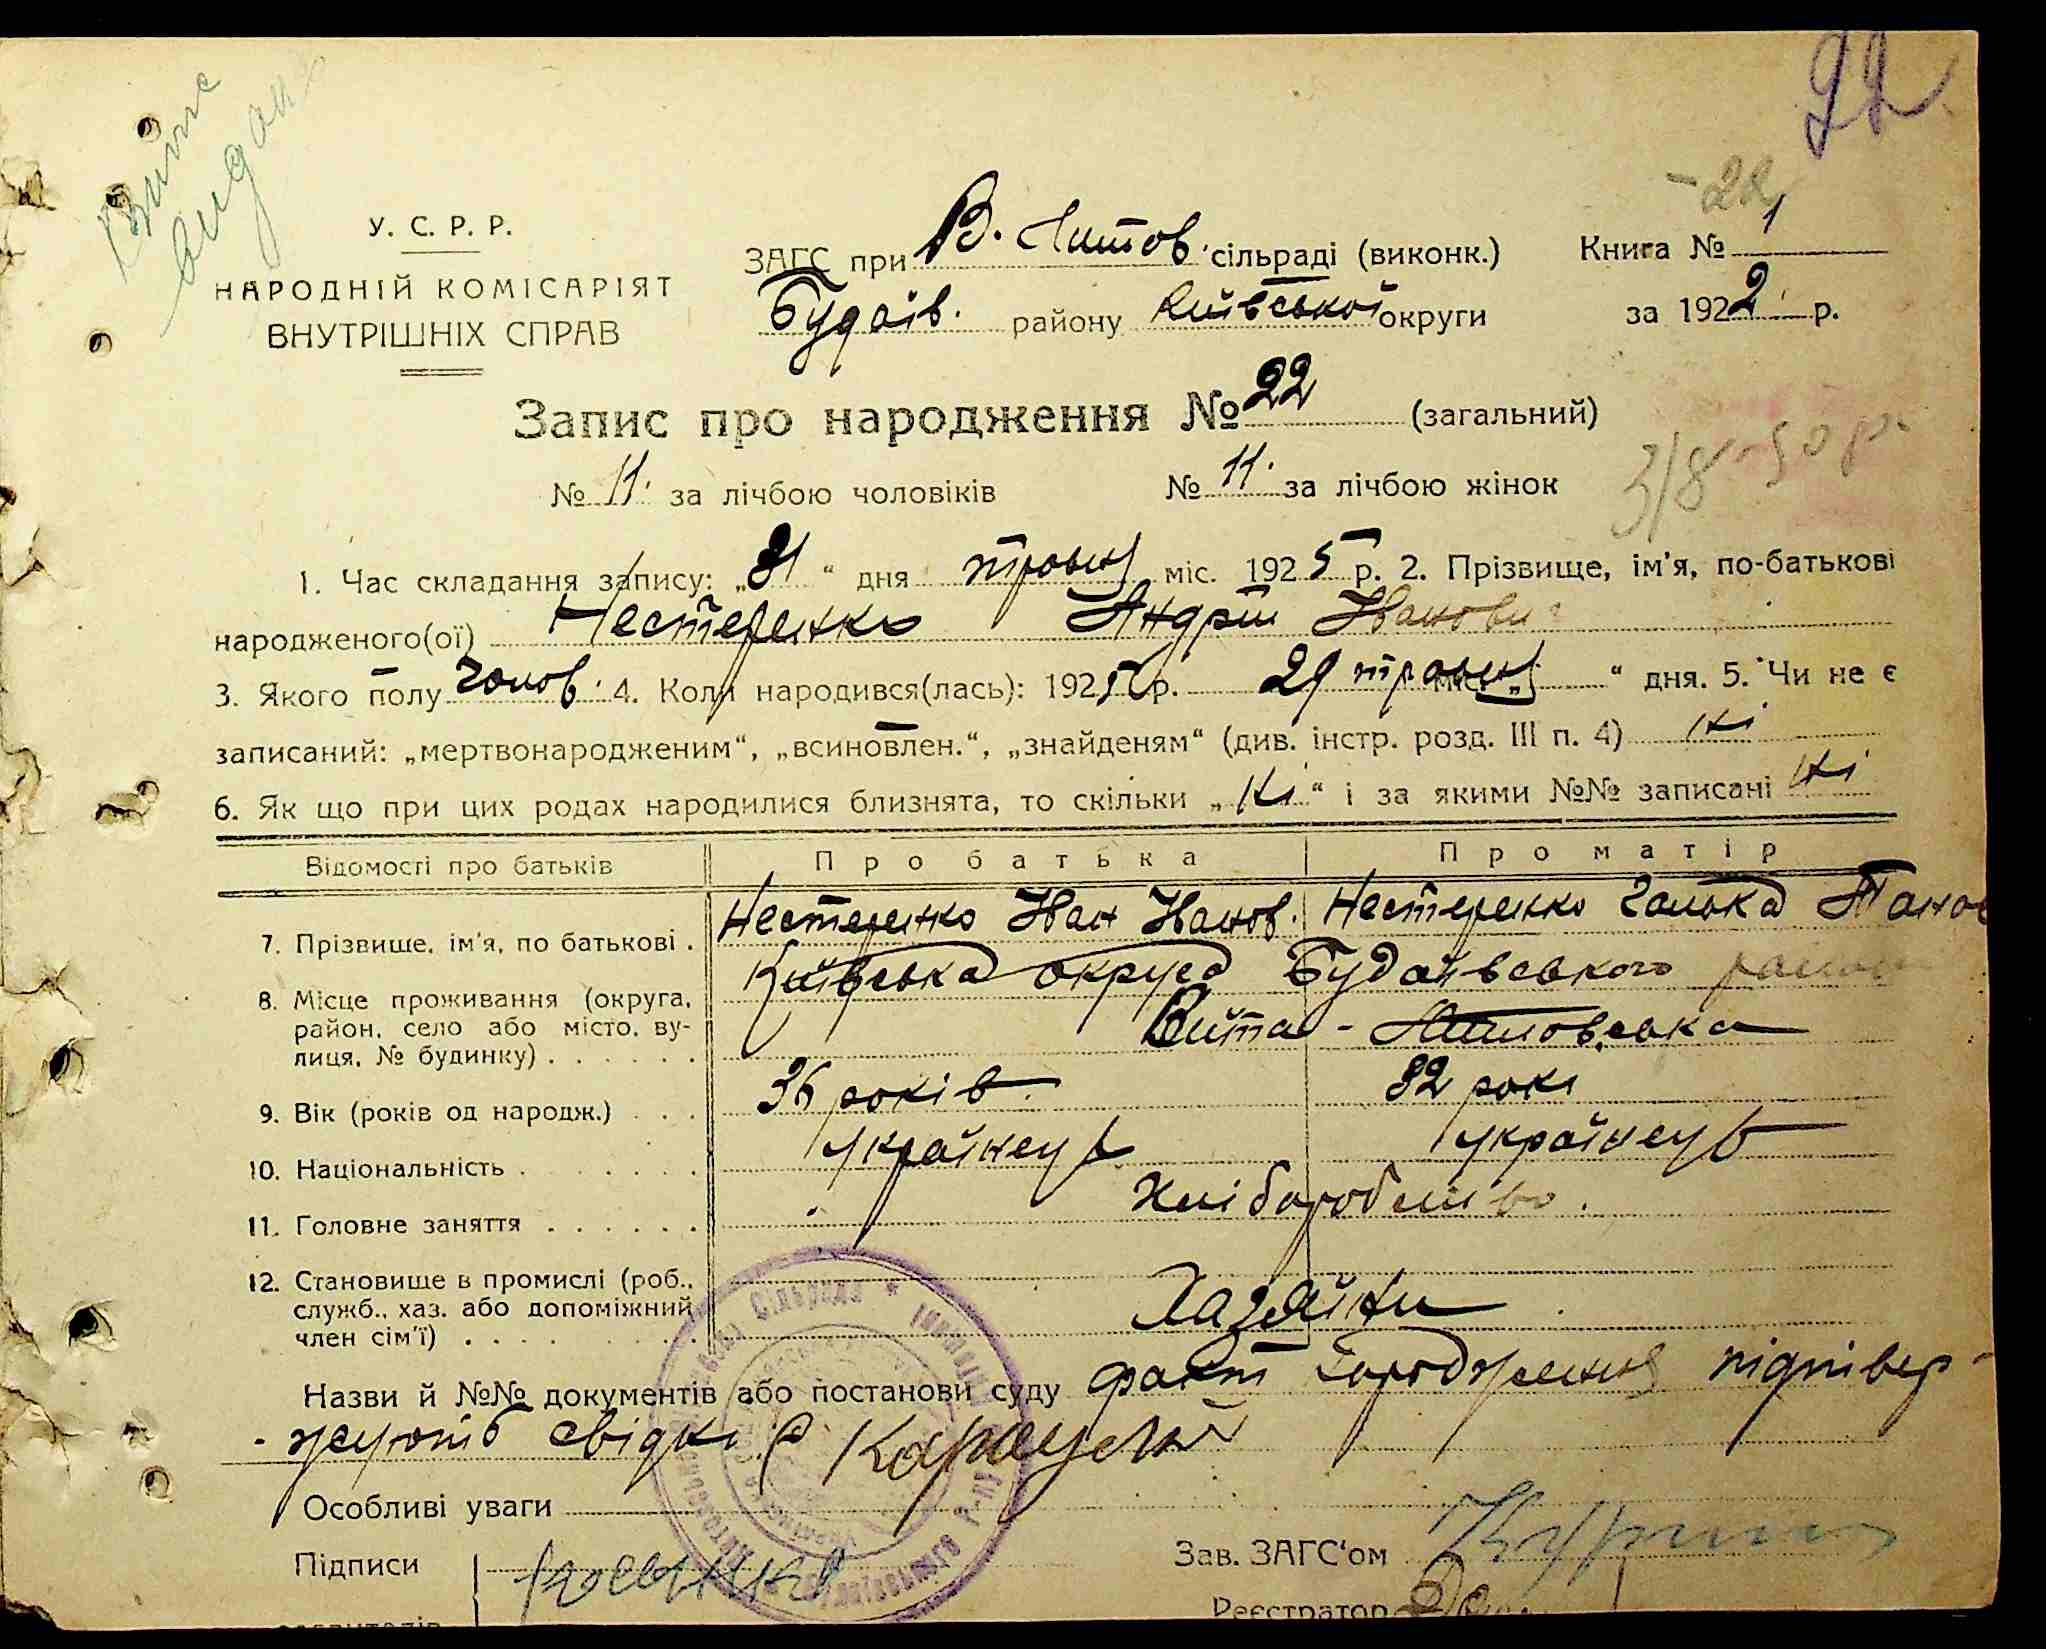 22
Випис
видан
-22
У. С. Р. Р.
НАРОДНІЙ КОМІСАРІЯТ
ВНУТРІШНІХ СПРАВ
ЗАГС при В. Литов. сільраді (виконк.)
Книга № 1
Будаїв. району Київської округи
за 1922 р.
Запис про народження № 22 (загальний)
№ 11. за лічбою чоловіків
№ 11. за лічбою жінок
3/8-50 р.
1. Час складання запису: „31“ дня травн міс. 1925 р. 2. Прізвище, ім'я, по-батькові
народженого(ої) Нестеренко Андрій Іванович
3. Якого полу Чолов. 4. Коли народився(лась): 1925 р. 29 травн міс. „ “ дня. 5. Чи не є
записаний: „мертвонародженим“, „всиновлен.“, „знайденям“ (див. інстр. розд. III п. 4) Ні
6. Як що при цих родах народилися близнята, то скільки „Ні“ і за якими №№ записані Ні
Відомості про батьків
Про батька
Про матір
7. Прізвище, ім'я, по батькові .
Нестеренко Іван Іванов.
Нестеренко
8. Місце проживання (округа,
район, село або місто, ву-
лиця, № будинку) . . . . . .
Київська округа Будаївського район
Вита - Литовська
9. Вік (років од народж.) . . .
36 років.
32 рокі
10. Національність . . . . . .
українец
українец
11. Головне заняття . . . . . .
Хліборобство.
12. Становище в промислі (роб.,
служб., хаз. або допоміжний
член сім'ї) . . . . . . . .
Хазяїни
Назви й №№ документів або постанови суду факт народження підтвер-
-жують свідки
Особливі уваги
Підписи
Зав. ЗАГС'ом
Реєстратор
Сільрада